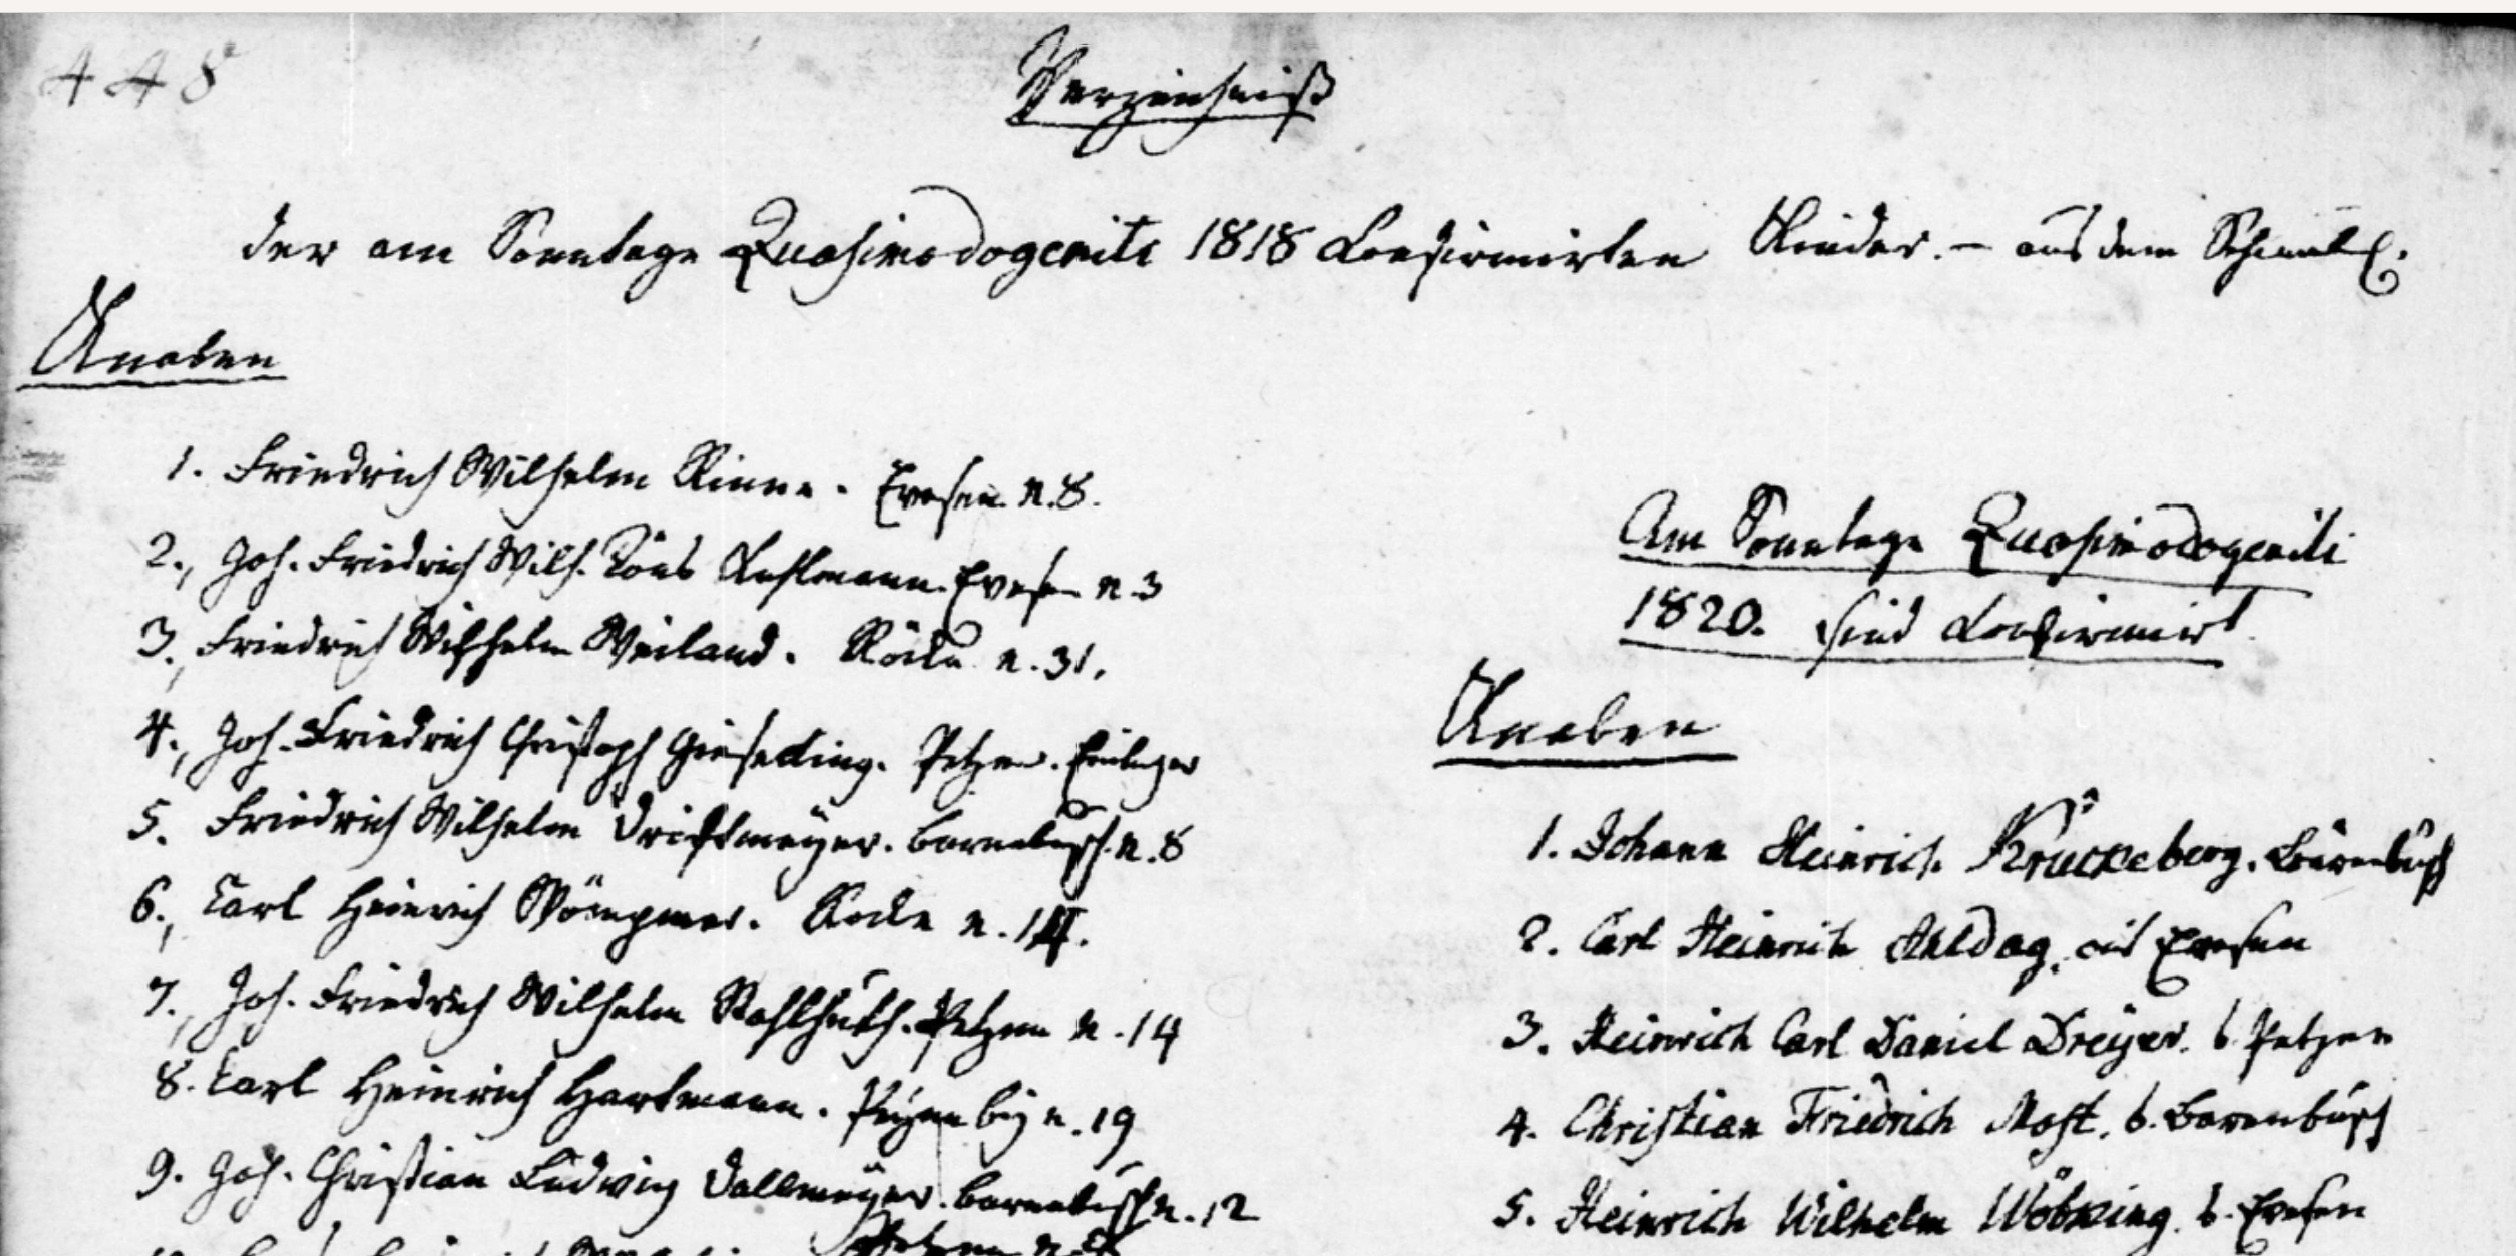 448
Verzeichniß
der am Sonntage Quasimodogeniti 1818 Confirmirten Kinder. — aus dem
Knaben
1. Friedrich Wilhelm Rinne. Evesen n. 8.
2., Joh. Friedrich Wilh. Evesen n. 3
3., Friedrich Wilhelm Weiland. Röcke n. 31.
4., Joh. Friedrich Christoph Gieseking. Petzen. Einlieger
5. Friedrich Wilhelm Driftmeyer. Barnebusch. n. 8
6., Carl Heinrich Röcke n. 14.
7., Joh. Friedrich Wilhelm Kahlhuth. Petzen n. 14
8. Carl Heinrich Hartmann. n. 19
9. Joh. Christian Ludwig Dallmeyer. Barnebusch n. 12
Petzen n.
Am Sonntage Quasimodogeniti
1820. sind Confirmirt
Knaben
1. Johann Heinrich Krückeberg. Barenbusch
2. Carl Heinrich Ahldag. aus Evesen
3. Heinrich Carl Daniel Dreyer. b. Petzen
4. Christian Friedrich Most. b. Barenbusch
5. Heinrich Wilhelm Wöbking. b. Evesen